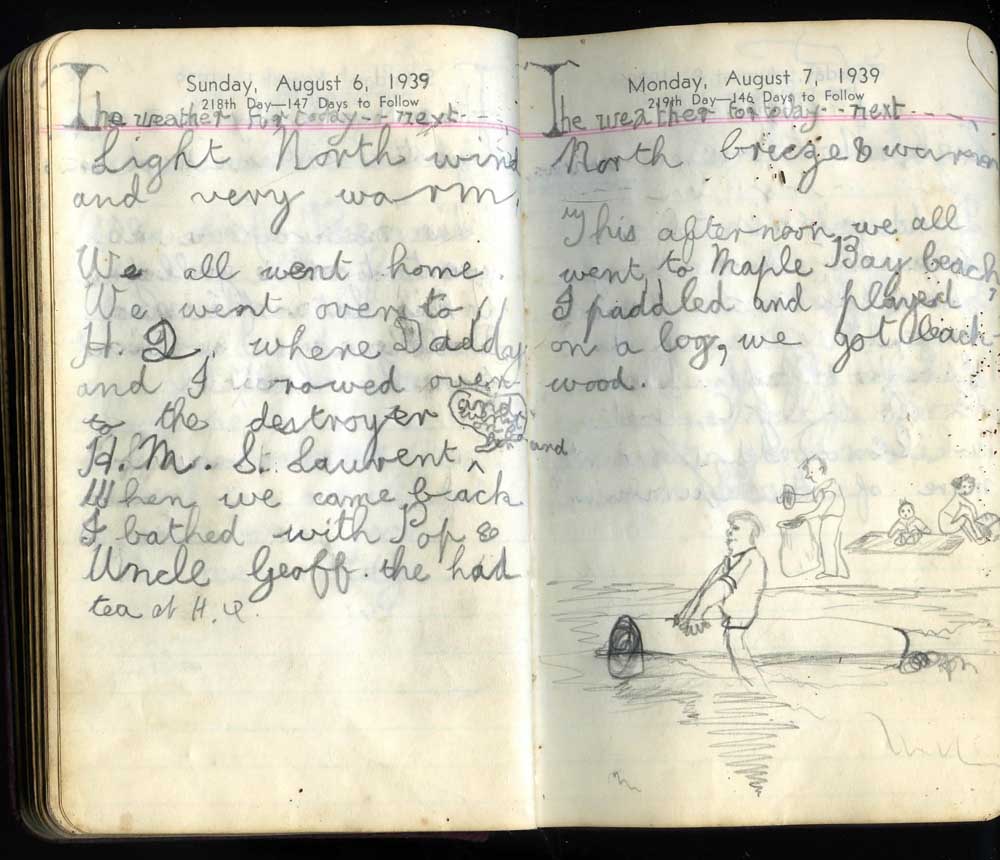 Sunday, August 6, 1939
218th Day—147 Days to Follow
The weather for today -- next --
Light North wind
and very warm.
We all went home.
We went over to
H. Q. where Daddy
and I rowed over
to the destroyer
H. M. St. Laurent ^ and
When we came back
I bathed with Pop &
Uncle Geoff. the had
tea at H. Q.
Monday, August 7, 1939
219th Day—146 Days to Follow
The weather for today -- next --
North breeze & warm
This afternoon we all
went to Maple Bay beach,
I paddled and played
on a log, we got back
wood.